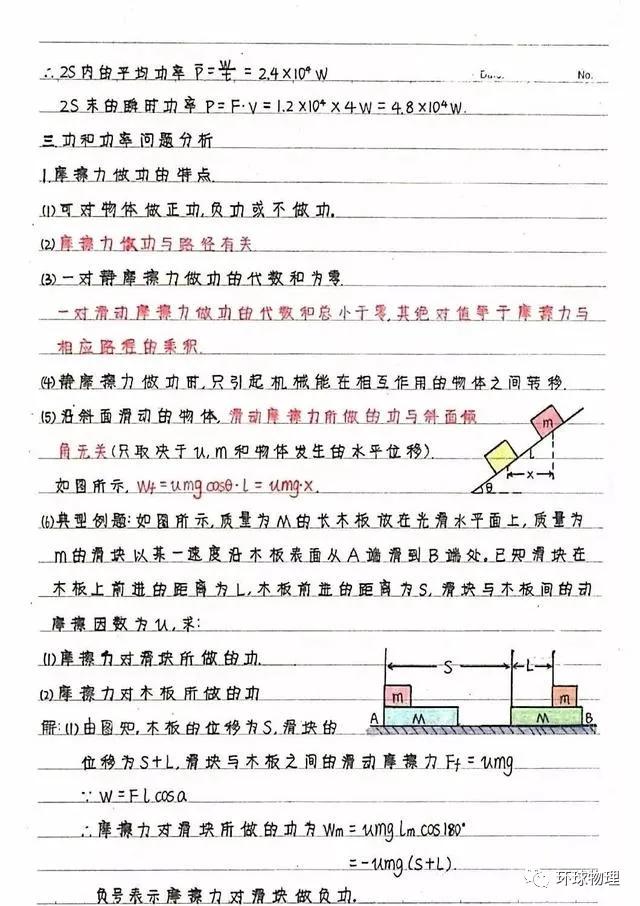 ∴ 2S内的平均功率 P̄=W/t=2.4×10⁴W
No.
2S末的瞬时功率 P=F·V=1.2×10⁴×4W=4.8×10⁴W.
三.功和功率问题分析
1.摩擦力做功的特点.
(1)可对物体做正功,负功或不做功。
(2)摩擦力做功与路径有关
(3)一对静摩擦力做功的代数和为零.
一对滑动摩擦力做功的代数和总小于零,其绝对值等于摩擦力与
相应路程的乘积.
(4)静摩擦力做功时,只引起机械能在相互作用的物体之间转移.
(5)沿斜面滑动的物体,滑动摩擦力所做的功与斜面倾
角无关(只取决于u,m和物体发生的水平位移).
如图所示,Wf=umg cosθ·l=umg·x.
m
l
x
θ
(6)典型例题:如图所示,质量为M的长木板放在光滑水平面上,质量为
m的滑块以某一速度沿木板表面从A端滑到B端处。已知滑块在
木板上前进的距离为L,木板前进的距离为S,滑块与木板间的动
摩擦因数为u,求:
(1)摩擦力对滑块所做的功.
(2)摩擦力对木板所做的功
S
L
m
m
A
M
M
B
解:(1)由图知,木板的位移为S,滑块的
位移为S+L,滑块与木板之间的滑动摩擦力Ff=umg
∵W=Flcosa
∴摩擦力对滑块所做的功为Wm=umglm cos180°
=-umg(S+L).
负号表示摩擦力对滑块做负功.
环球物理